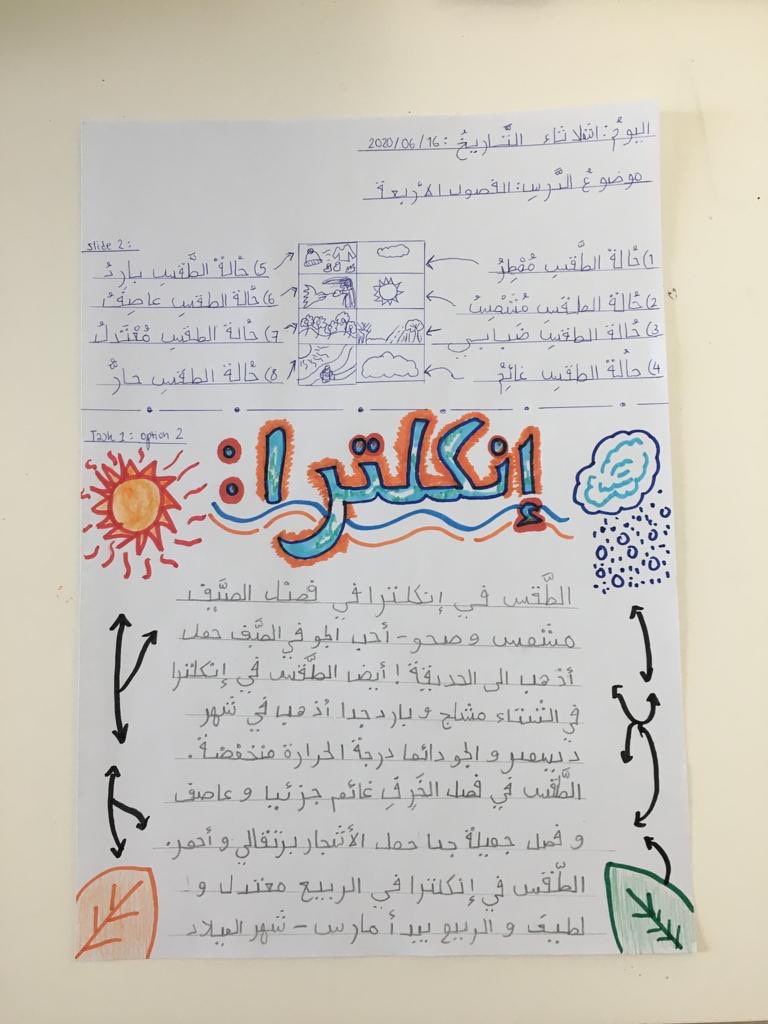 اليومُ: اثلاثاء التَّاريخُ: 2020/06/16
موضوعُ الدَّرسِ: الفصول الأربعة
slide 2:
1) حَالةُ الطَّقسِ مُمْطِرُ
2) حَالةُ الطقسِ مُشْمِسُ
3) حَالةُ الطقسِ ضَبابي
4) حالُةُ الطقسِ غائِمُ
5) حَالةُ الطَّقسِ بارِدُ
6) حَالةُ الطقسِ عاصِفُ
7) حَالةُ الطقسِ مُعْتَدلُ
8) حَالةُ الطقسِ حارُّ
Task 1: option 2
إنكلترا:
الطَّقس في إنكلترا في فصل الصَّيف
مشمس و صحو - أحب الجو في الصَّف حمل
أذهب الى الحديقة! أيضا الطَّقس في إنكلترا
في الشتاء مشلج و بارد جدا أذهب في شهر
ديسمبر و الجو دائما درجة الحرارة منخفضة.
الطَّقس في فصل الخَرِفِ غائم جزئيا و عاصف
و فصل جميلة جدا حمل الأشجار برتقالي و أحمر.
الطّقس في إنكلترا في الربيع معتدل و
لطيف و الربيع يبدأ مارس - شهر الميلاد